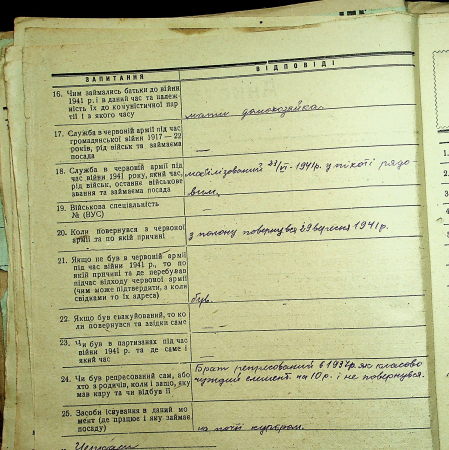 ЗАПИТАННЯ
ВІДПОВІДІ
16. Чим займались батьки до війни
1941 р. і в даний час та належ-
ність їх до комуністичної пар-
тії і з якого часу
мати домохозяйка.
17. Служба в червоній армії під час
громадянської війни 1917 — 22
років, рід військ та займаєма
посада
—
18. Служба в червоній армії під
час війни 1941 року, який час,
рід військ, останнє військове
звання та займаєма посада
мобілізований 23/VI-1941р. у піхоті рядо-
вим.
19. Військова спеціальність
№ (ВУС)
20. Коли повернувся з червоної
армії та по якій причині
з полону повернувся 29 вересня 1941 р.
21. Якщо не був в червоній армії
під час війни 1941 р., то по
якій причині та де перебував
підчас відходу червоної армії
(чим може підтвердити, а коли
свідками то їх адреса)
був.
22. Якщо був евакуйований, то ко-
ли повернувся та звідки саме
—
23. Чи був в партизанах під час
війни 1941 р. та де саме і
який час
—
24. Чи був репресований сам, або
хто з родичів, коли і защо, яку
мав кару та чи відбув її
Брат репресований в 1937р. як класово
чуждий елемент на 10 р. і не повернувся.
25. Засоби існування в даний мо-
мент (де працює і яку займає
посаду)
на почті курєром.